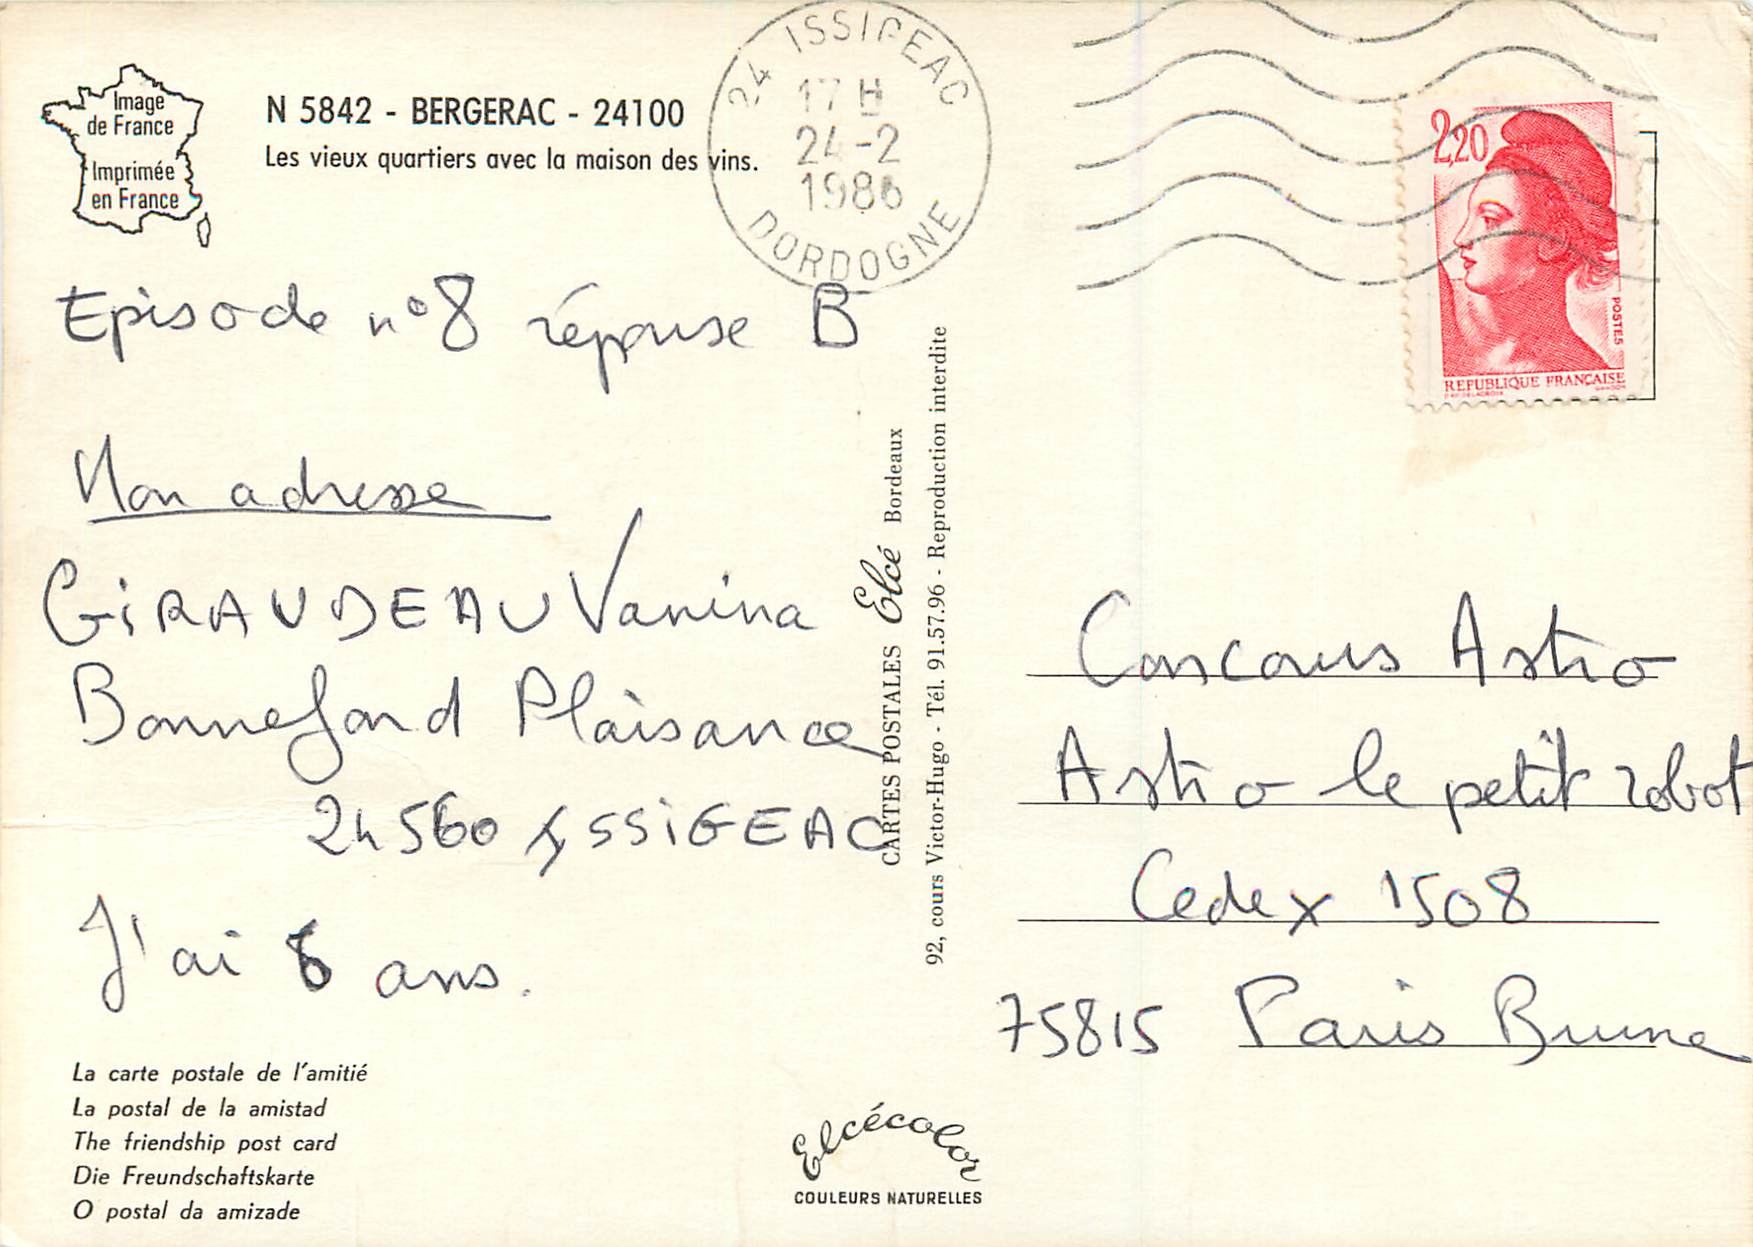 Image
de France
Imprimée
en France
N 5842 - BERGERAC - 24100
Les vieux quartiers avec la maison des vins.
24 ISSIGEAC
17 H
24-2
1986
DORDOGNE
2,20
POSTES
REPUBLIQUE FRANÇAISE
Episode n°8 réponse B
Mon adresse
GiRAUDEAU Vanina
Bonnefond Plaisance
24560 ISSiGEAC
J'ai 8 ans.
CARTES POSTALES Elcé Bordeaux
92, cours Victor-Hugo - Tél. 91.57.96 - Reproduction interdite
Concours Astro
Astro le petit robot
Cedex 1508
75815 Paris Brune
La carte postale de l'amitié
La postal de la amistad
The friendship post card
Die Freundschaftskarte
O postal da amizade
Elcécolor
COULEURS NATURELLES